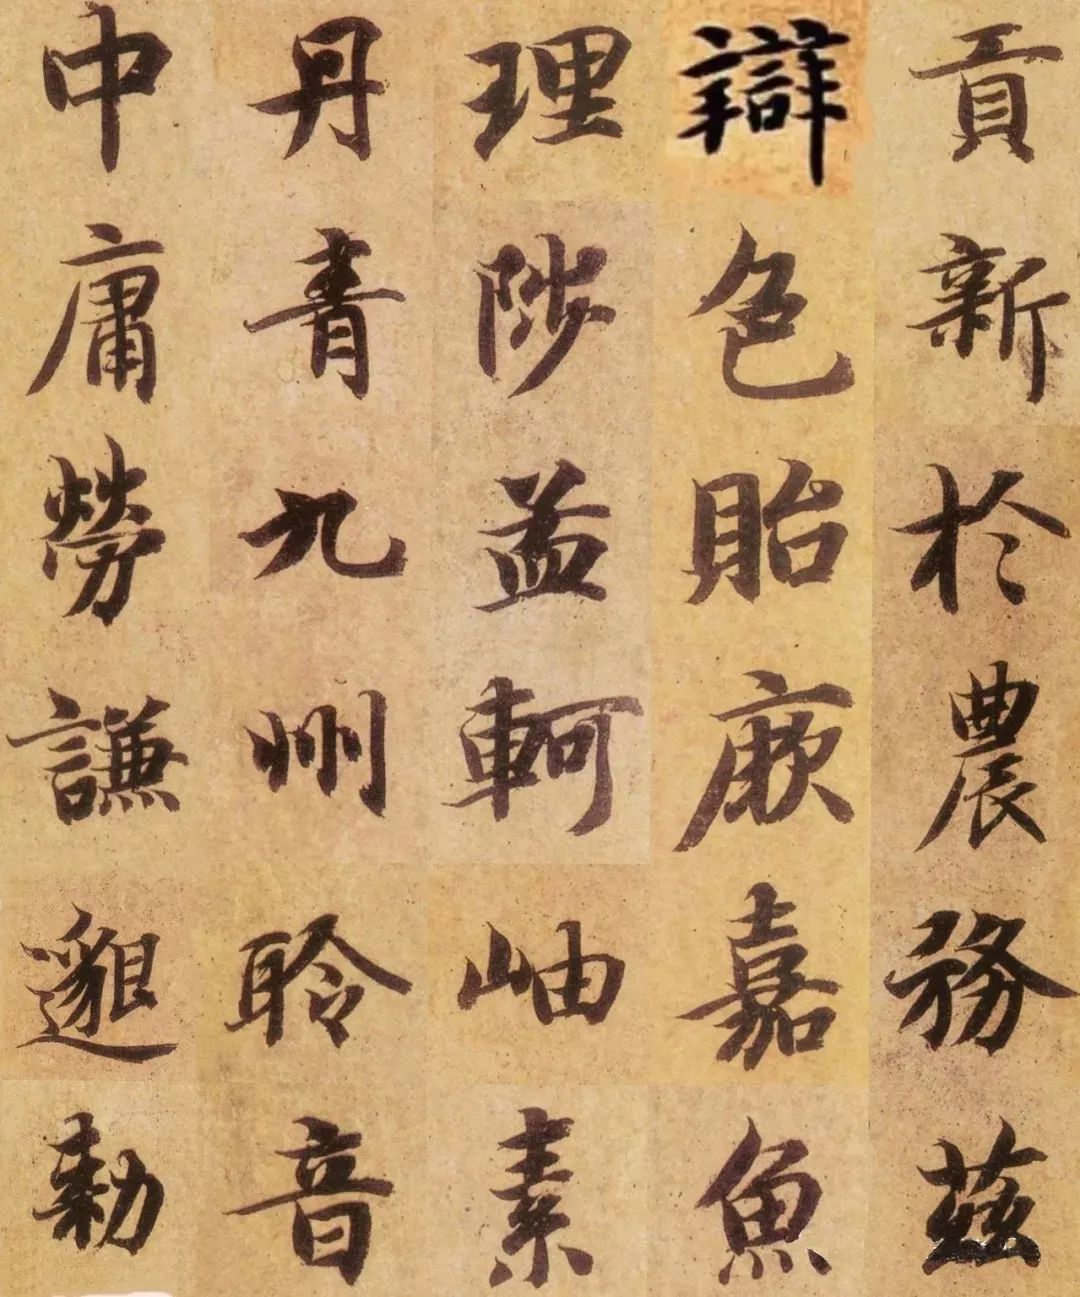 貢新於農務茲
辯色貽厥嘉魚
理陟益軻岫素
丹青九州聆音
中庸勞謙邈勅